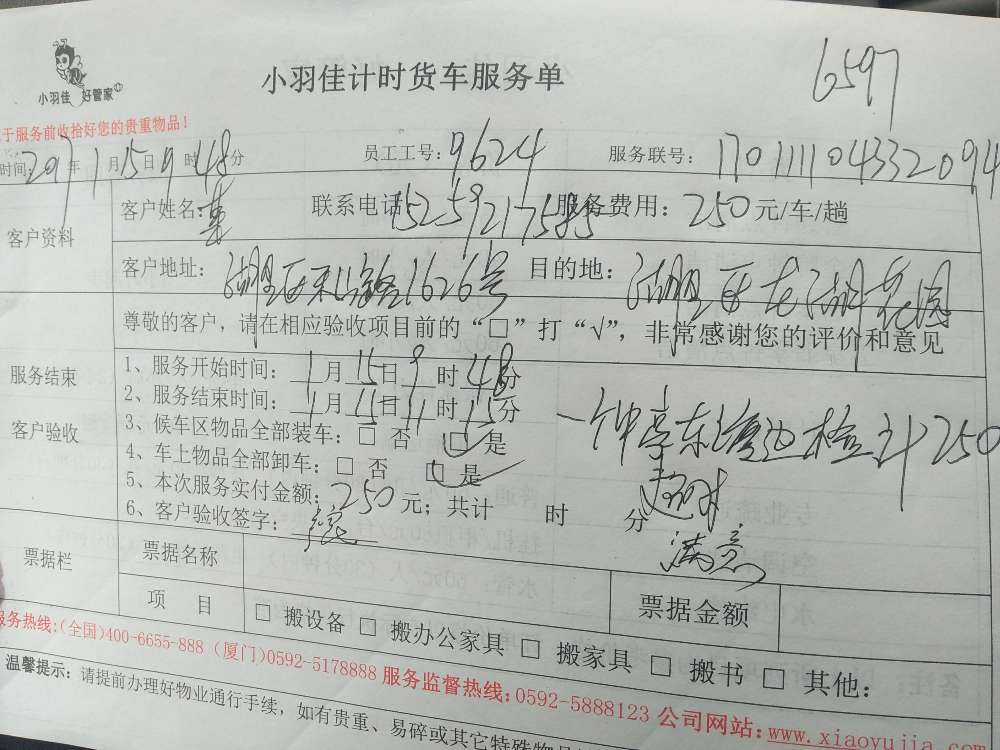 小羽佳 好管家
小羽佳计时货车服务单
6597
于服务前收拾好您的贵重物品！
时间：2017年1月15日9时48分 员工工号：9624 服务联号：170111104332094
客户资料
客户姓名： 联系电话：15259217585 服务费用：250元/车/趟
客户地址：湖里区 1626号 目的地：湖里区 花园
尊敬的客户，请在相应验收项目前的“□”打“√”，非常感谢您的评价和意见
服务结束
客户验收
1、服务开始时间：1月15日9时48分
2、服务结束时间：1月15日11时15分
3、候车区物品全部装车：□ 否 □ 是
4、车上物品全部卸车：□ 否 □ 是
5、本次服务实付金额：250元；共计 时 分
6、客户验收签字：
计250
满意
票据栏
票据名称
票据金额
项 目
□ 搬设备 □ 搬办公家具 □ 搬家具 □ 搬书 □ 其他：
服务热线：(全国)400-6655-888 (厦门)0592-5178888 服务监督热线：0592-5888123 公司网站：www.xiaoyujia.com
温馨提示：请提前办理好物业通行手续，如有贵重、易碎或其它特殊物品